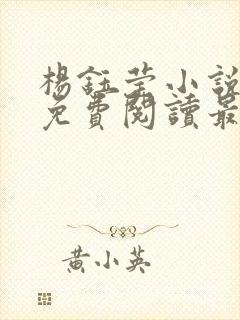 楊鈺莹小說
免費閱讀最
黃小英